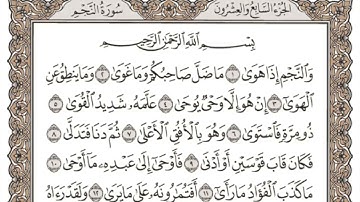 الجزء السابع والعشرون سورة النجم
بِسْمِ اللَّهِ الرَّحْمَٰنِ الرَّحِيمِ
وَالنَّجْمِ إِذَا هَوَىٰ ١ مَا ضَلَّ صَاحِبُكُمْ وَمَا غَوَىٰ ٢ وَمَا يَنطِقُ عَنِ
الْهَوَىٰ ٣ إِنْ هُوَ إِلَّا وَحْيٌ يُوحَىٰ ٤ عَلَّمَهُ شَدِيدُ الْقُوَىٰ ٥
ذُو مِرَّةٍ فَاسْتَوَىٰ ٦ وَهُوَ بِالْأُفُقِ الْأَعْلَىٰ ٧ ثُمَّ دَنَا فَتَدَلَّىٰ ٨
فَكَانَ قَابَ قَوْسَيْنِ أَوْ أَدْنَىٰ ٩ فَأَوْحَىٰ إِلَىٰ عَبْدِهِ مَا أَوْحَىٰ ١٠
مَا كَذَبَ الْفُؤَادُ مَا رَأَىٰ ١١ أَفَتُمَارُونَهُ عَلَىٰ مَا يَرَىٰ ١٢ وَلَقَدْ رَآهُ